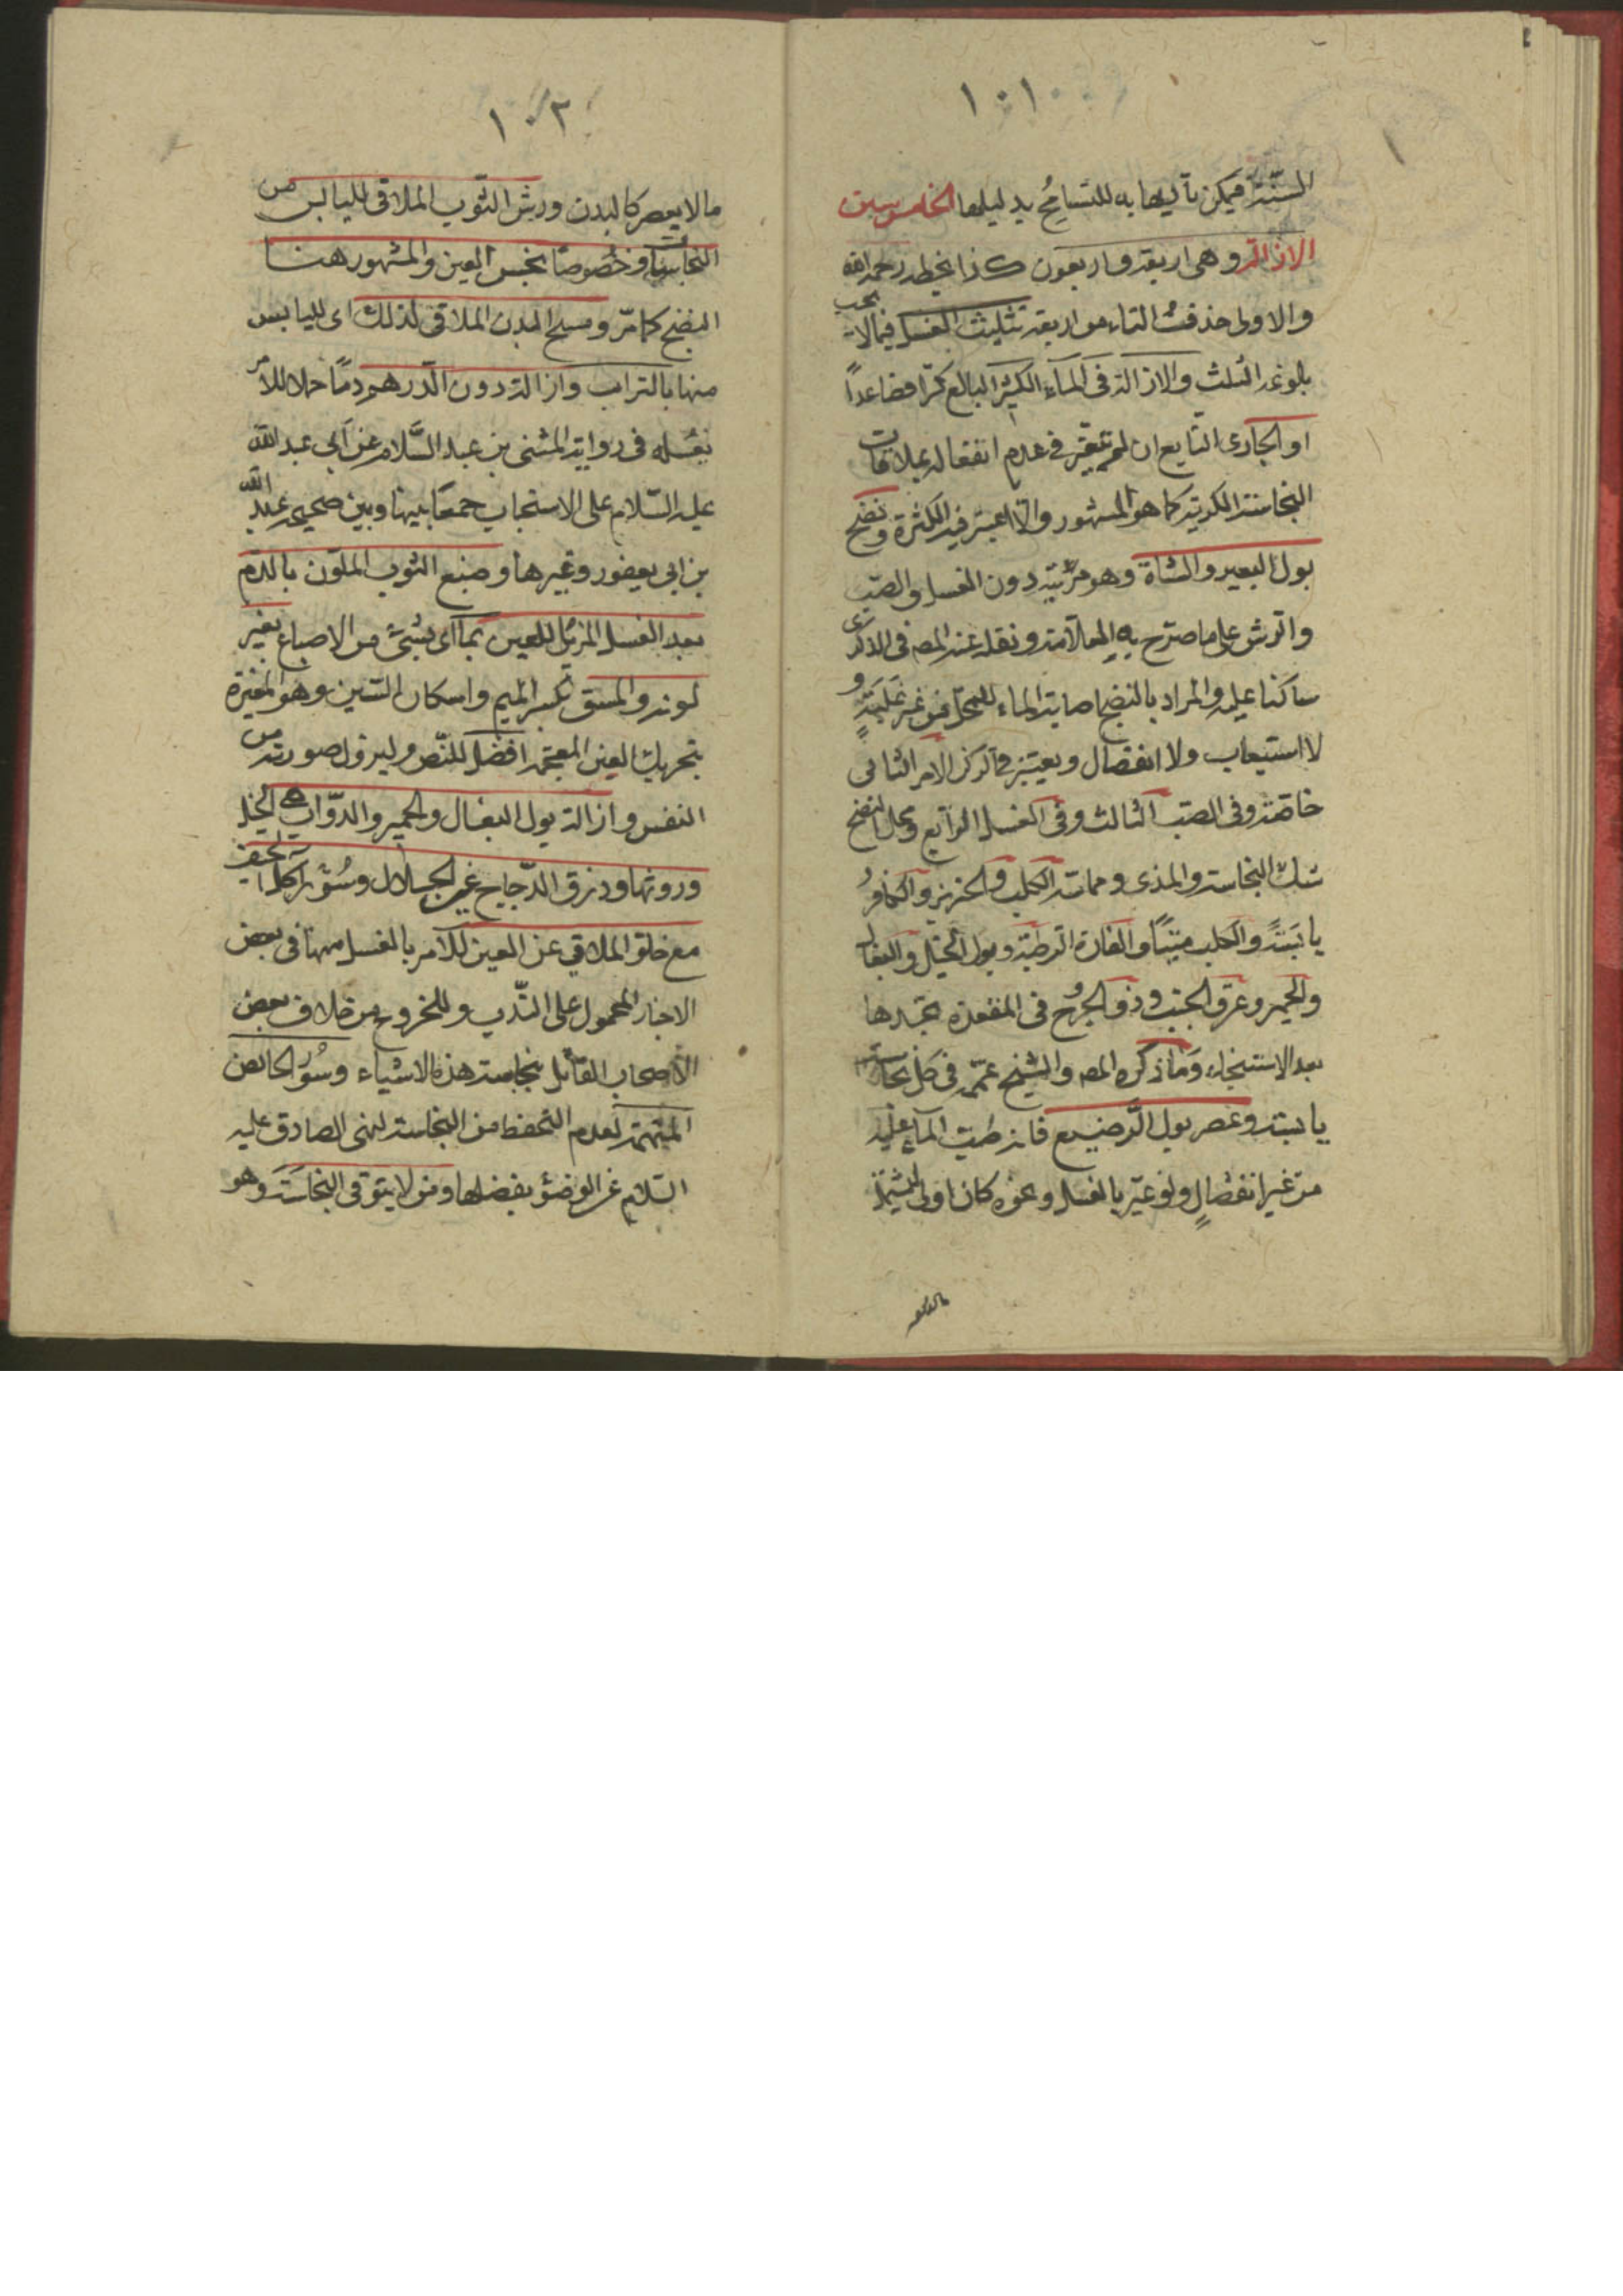 ١٠١
السنة فيمكن تأليها به للتسامح بدليلها الخامس سنن
الازالة وهى اربعة واربعون كذا بخطه رحمه الله
والاولى حذف التاء من اربعة تثليث الغسل فيما لا يجب
بلوغه الثلث والازالة فى الماء الكثير البالغ كرّا فصاعداً
او الجارى النابع ان لم يعتبر فى عدم انفعاله بملاقات
النجاسة الكرية كما هو المشهور والا اعتبر فيه الكثرة ونضح
بول البعير والشاة وهو مرتبة دون الغسل والصب
والرش على ما صرح به العلامة ونقله عنه المص فى الذكرى
ساكتا عليه والمراد بالنضح اصابة الماء للمحل من غير غلبة و
لا استيعاب ولا انفصال ويعتبر فى الرش الامر الثانى
خاصة وفى الصب الثالث وفى الغسل الرابع ومحل النضح
شك النجاسة والمذى ومماسة الكلب والخنزير والكافر
يابسةً والكلب ميتاً والفارة الرطبة وبول الخيل والبغال
والحمير وعرق الجنب وذو الجرح فى المقعدة يجدها
بعد الاستنجاء وما ذكره المص والشيخ عممه فى كل نجاسة
يابسة وعصر بول الرضيع فانه صب الماء عليه
من غير انفصالٍ ولو عبّر بالغسل ونحوه كان اولى ليشمل
مالا يعصر
١٠٢
مالا يعصر كالبدن ورش الثوب الملاقى لليابس من
النجاسات وخصوصاً نجس العين والمشهور هنا
النضح كما مرّ ومسح البدن الملاقى لذلك اى لليابس
منها بالتراب وازالة دون الدرهم دماً حملا للامر
بغسله فى رواية المثنى بن عبد السّلام عن ابى عبد الله
عليه السّلام على الاستحباب جمعًا بينها وبين صحيحة عبد الله
بن ابى يعفور وغيرها وصبغ الثوب الملون بالدم
بعد الغسل المزيل للعين بما اى بشئ من الاصباغ يغير
لونه والمشق بكسر الميم واسكان الشين وهو المغرة
بتحريك الغين المعجمة افضل للنّص وليزول صورته من
النفس وازالة بول البغال والحمير والدّواب اى الخيل
وروثها وذرق الدّجاج غير الجلال وسُؤر آكل الجيف
مع خلو الملاقى عن العين للامر بالغسل منها فى بعض
الاخبار المحمول على النّدب وللخروج من خلاف بعض
الاصحاب القائل بنجاسة هذه الاشياء وسُؤر الحائض
المتهمة لعدم التحفظ من النجاسة لنهى الصادق عليه
السّلام عن الوضؤ بفضلها ومن لا يتوقى النجاسة وهو